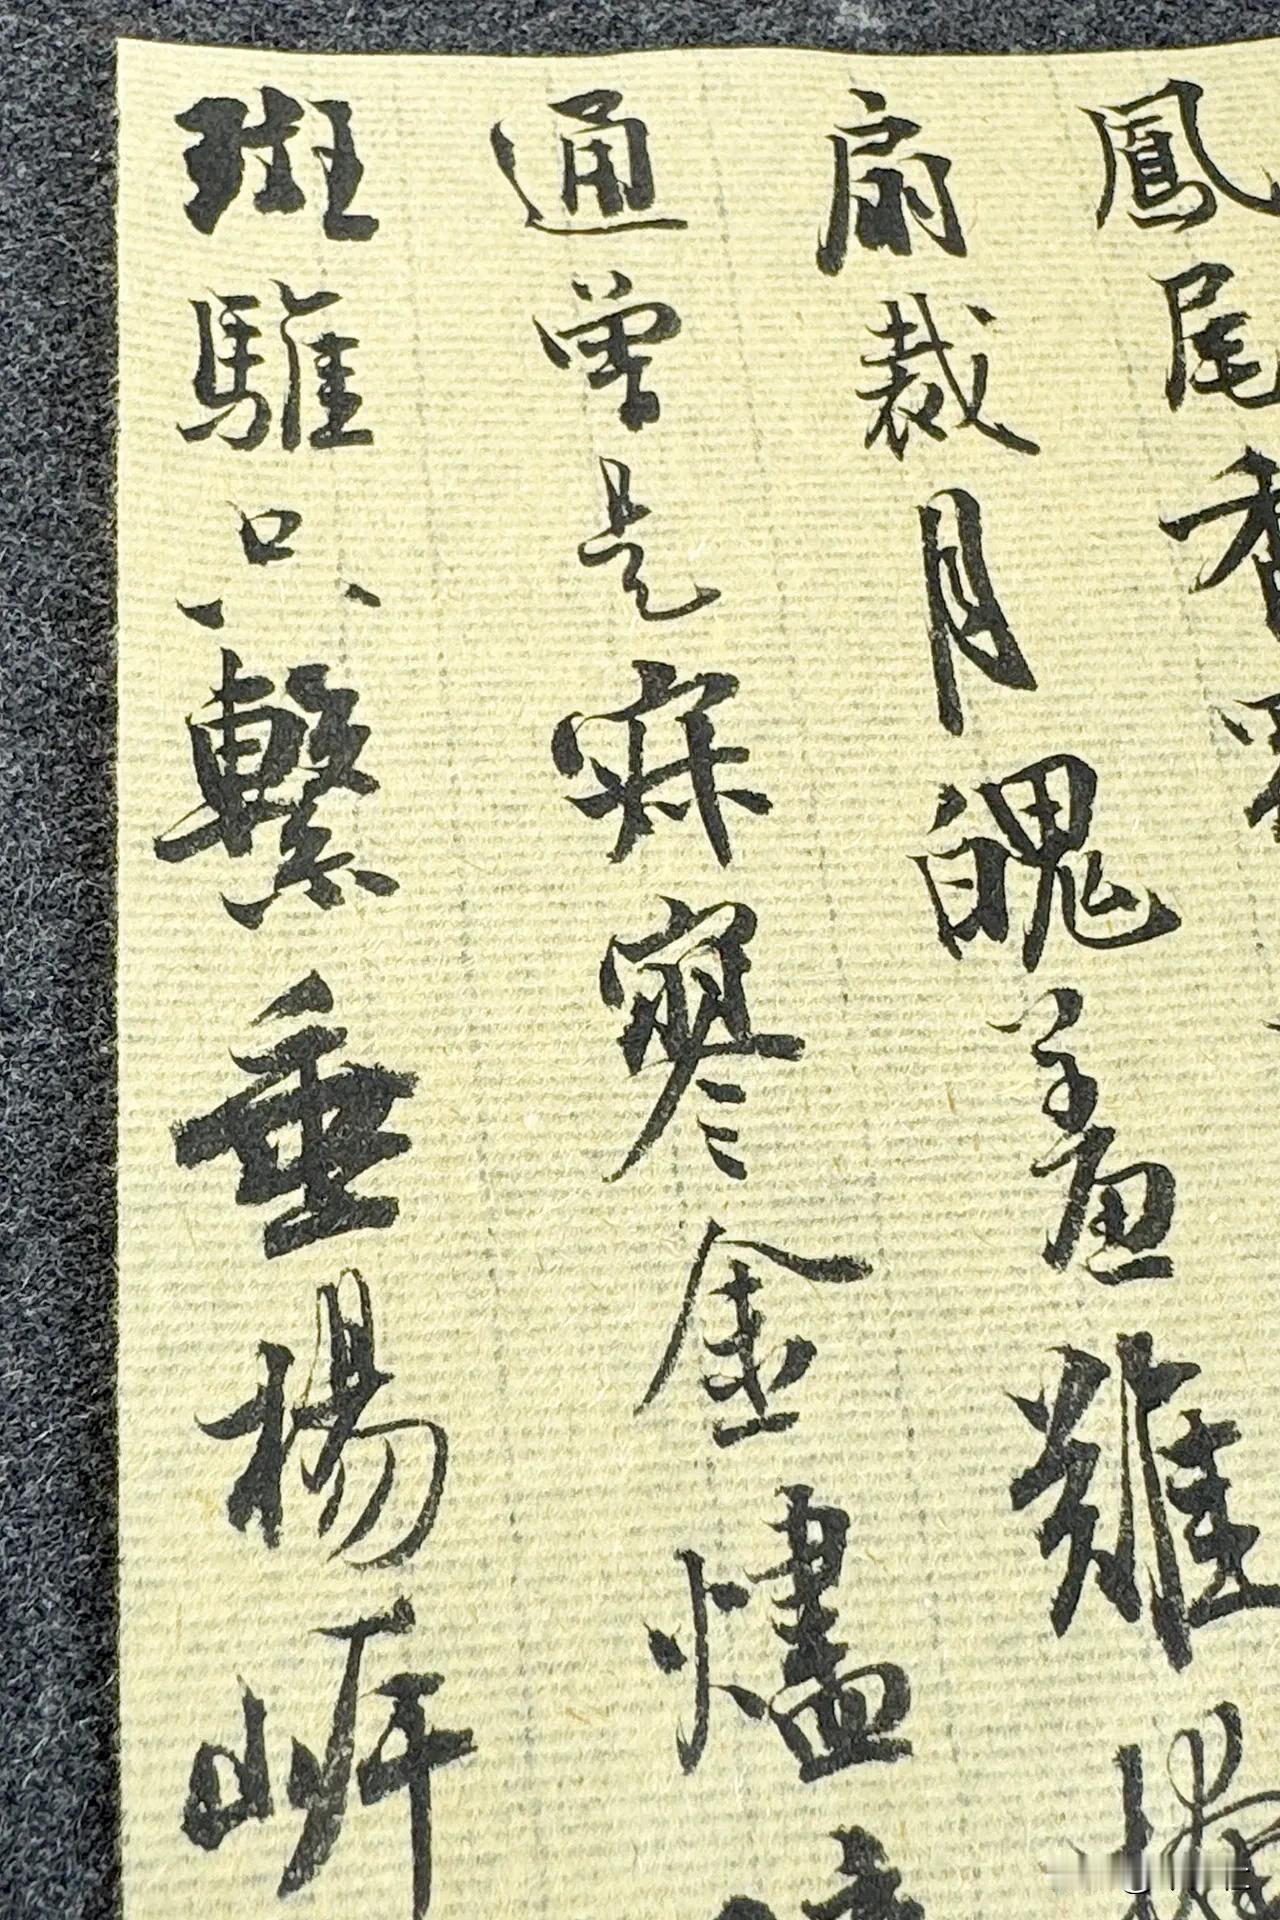 鳳尾香羅
扇裁月魄羞難掩
通曾是寂寥金燼暗
斑騅只繫垂楊岸